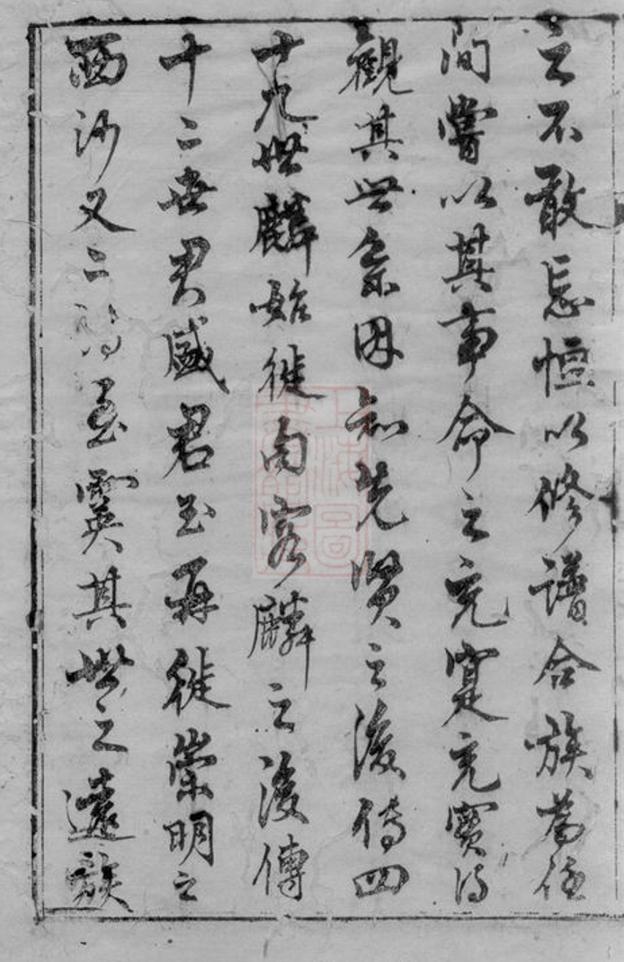 之不敢忘恒以修譜合族為任
間嘗以其事命之充寔充實得
觀其世系因知先賢之後傳四
十九世麟始徙句容麟之後傳
十二世君盛君玉再徙崇明之
西沙又二 至 其世之遠族